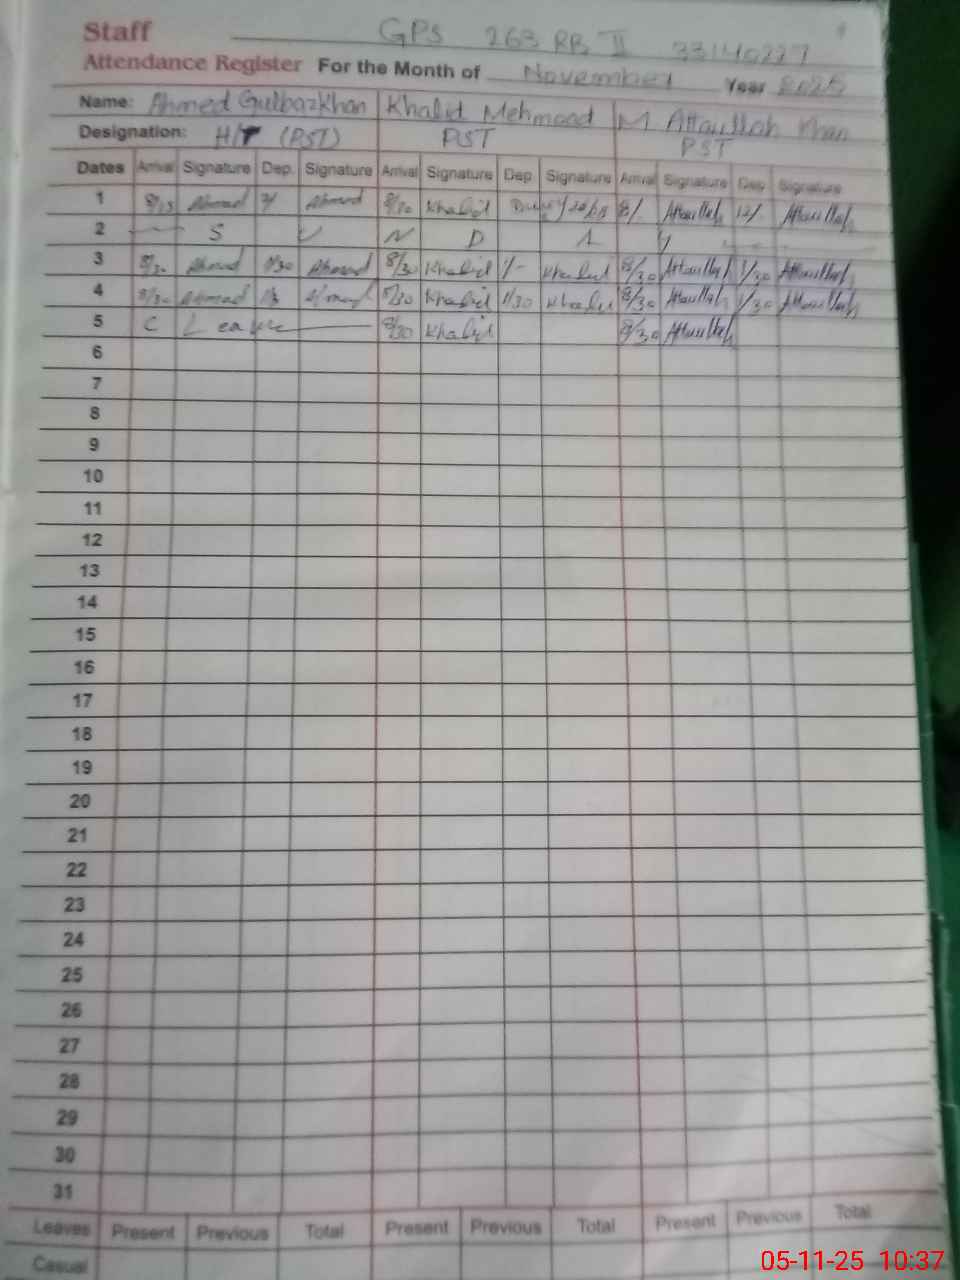 Staff GPS 263 RB II 33140227
Attendance Register For the Month of November Year 2025
Name: Ahmed Gulbaz Khan Khalid Mehmood M Attaullah Khan
Designation: H/T (PST) PST PST
Dates Arrival Signature Dep. Signature Arrival Signature Dep Signature Arrival Signature Dep Signature
1 8/15 Ahmad Ahmad Khalid 8/ Attaullah 12/ Attaullah
2 S U N D A Y
3 8/30 Ahmad 1/30 Ahmad 8/30 Khalid 1/- Khalid 8/30 Attaullah 1/30 Attaullah
4 8/30 Ahmad Ahmad 8/30 Khalid 1/30 Khalid 8/30 Attaullah 1/30 Attaullah
5 C Leave 8/30 Khalid 8/30 Attaullah
6
7
8
9
10
11
12
13
14
15
16
17
18
19
20
21
22
23
24
25
26
27
28
29
30
31
Leaves Present Previous Total Present Previous Total Present Previous Total
Casual
05-11-25 10:37